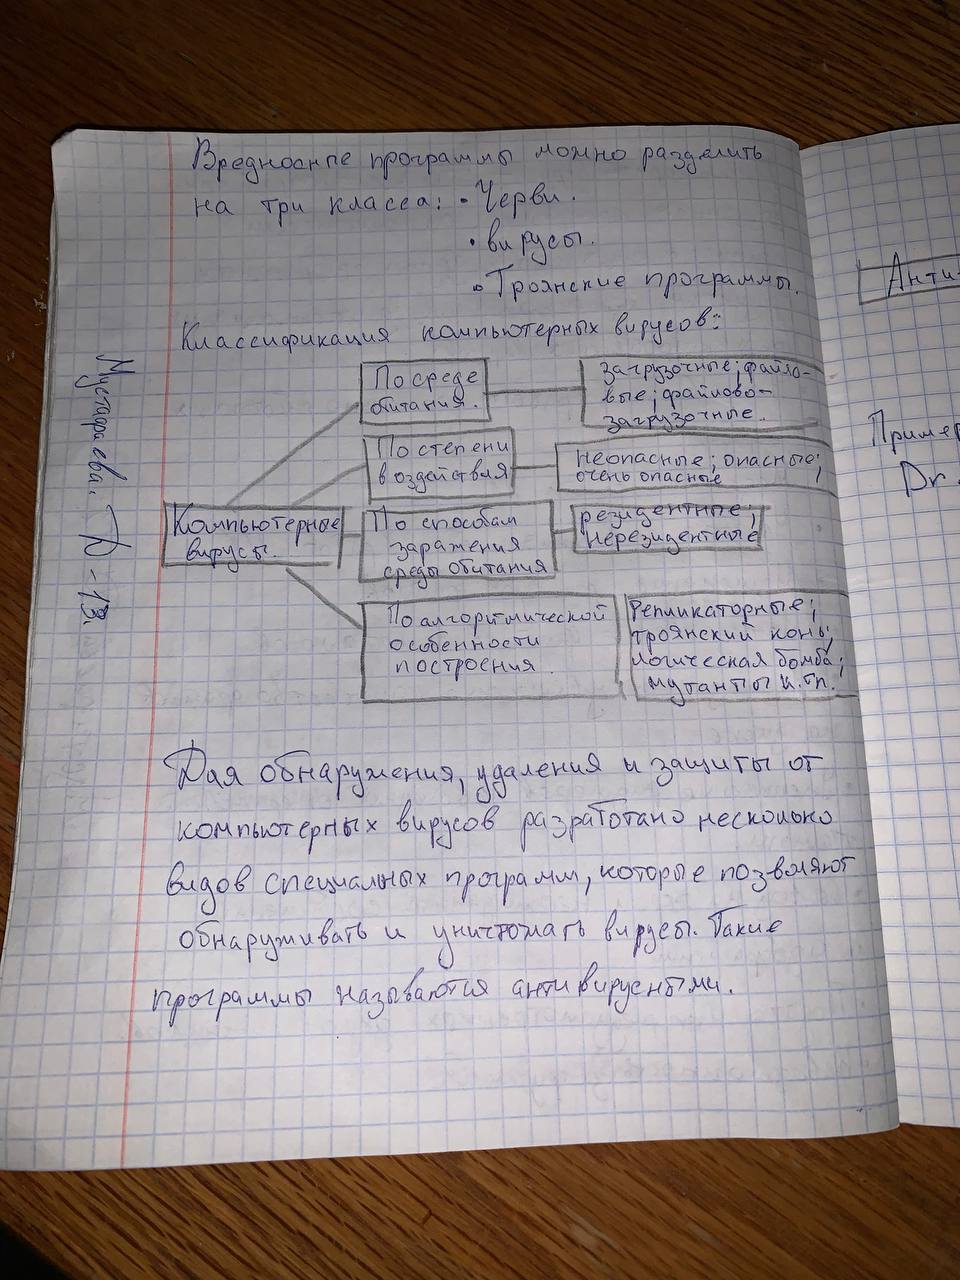 Вредносные программы можно разделить
на три класса: • Черви.
• вирусы.
• Троянские программы.
Классификация компьютерных вирусов:
По среде
обитания.
загрузочные; файло-
вые; файлово-
загрузочные.
По степени
воздайствя
неопасные; опасные;
очень опасные
Компьютерные
вирусы.
По способам
заражения
среды обитания
резидентные;
нерезидентные
По алгоритмической
особенности
построения.
Репликаторные;
троянский конь;
логическая бомба;
мутанты и.тп.
Для обнаружения, удаления и защиты от
компьютерных вирусов разработано несколько
видов специальных программ, которые позволяют
обнаруживать и уничтожать вирусы. Такие
программы называются антивирусными.
Мустафаева.
Анти
Пример
Dr.